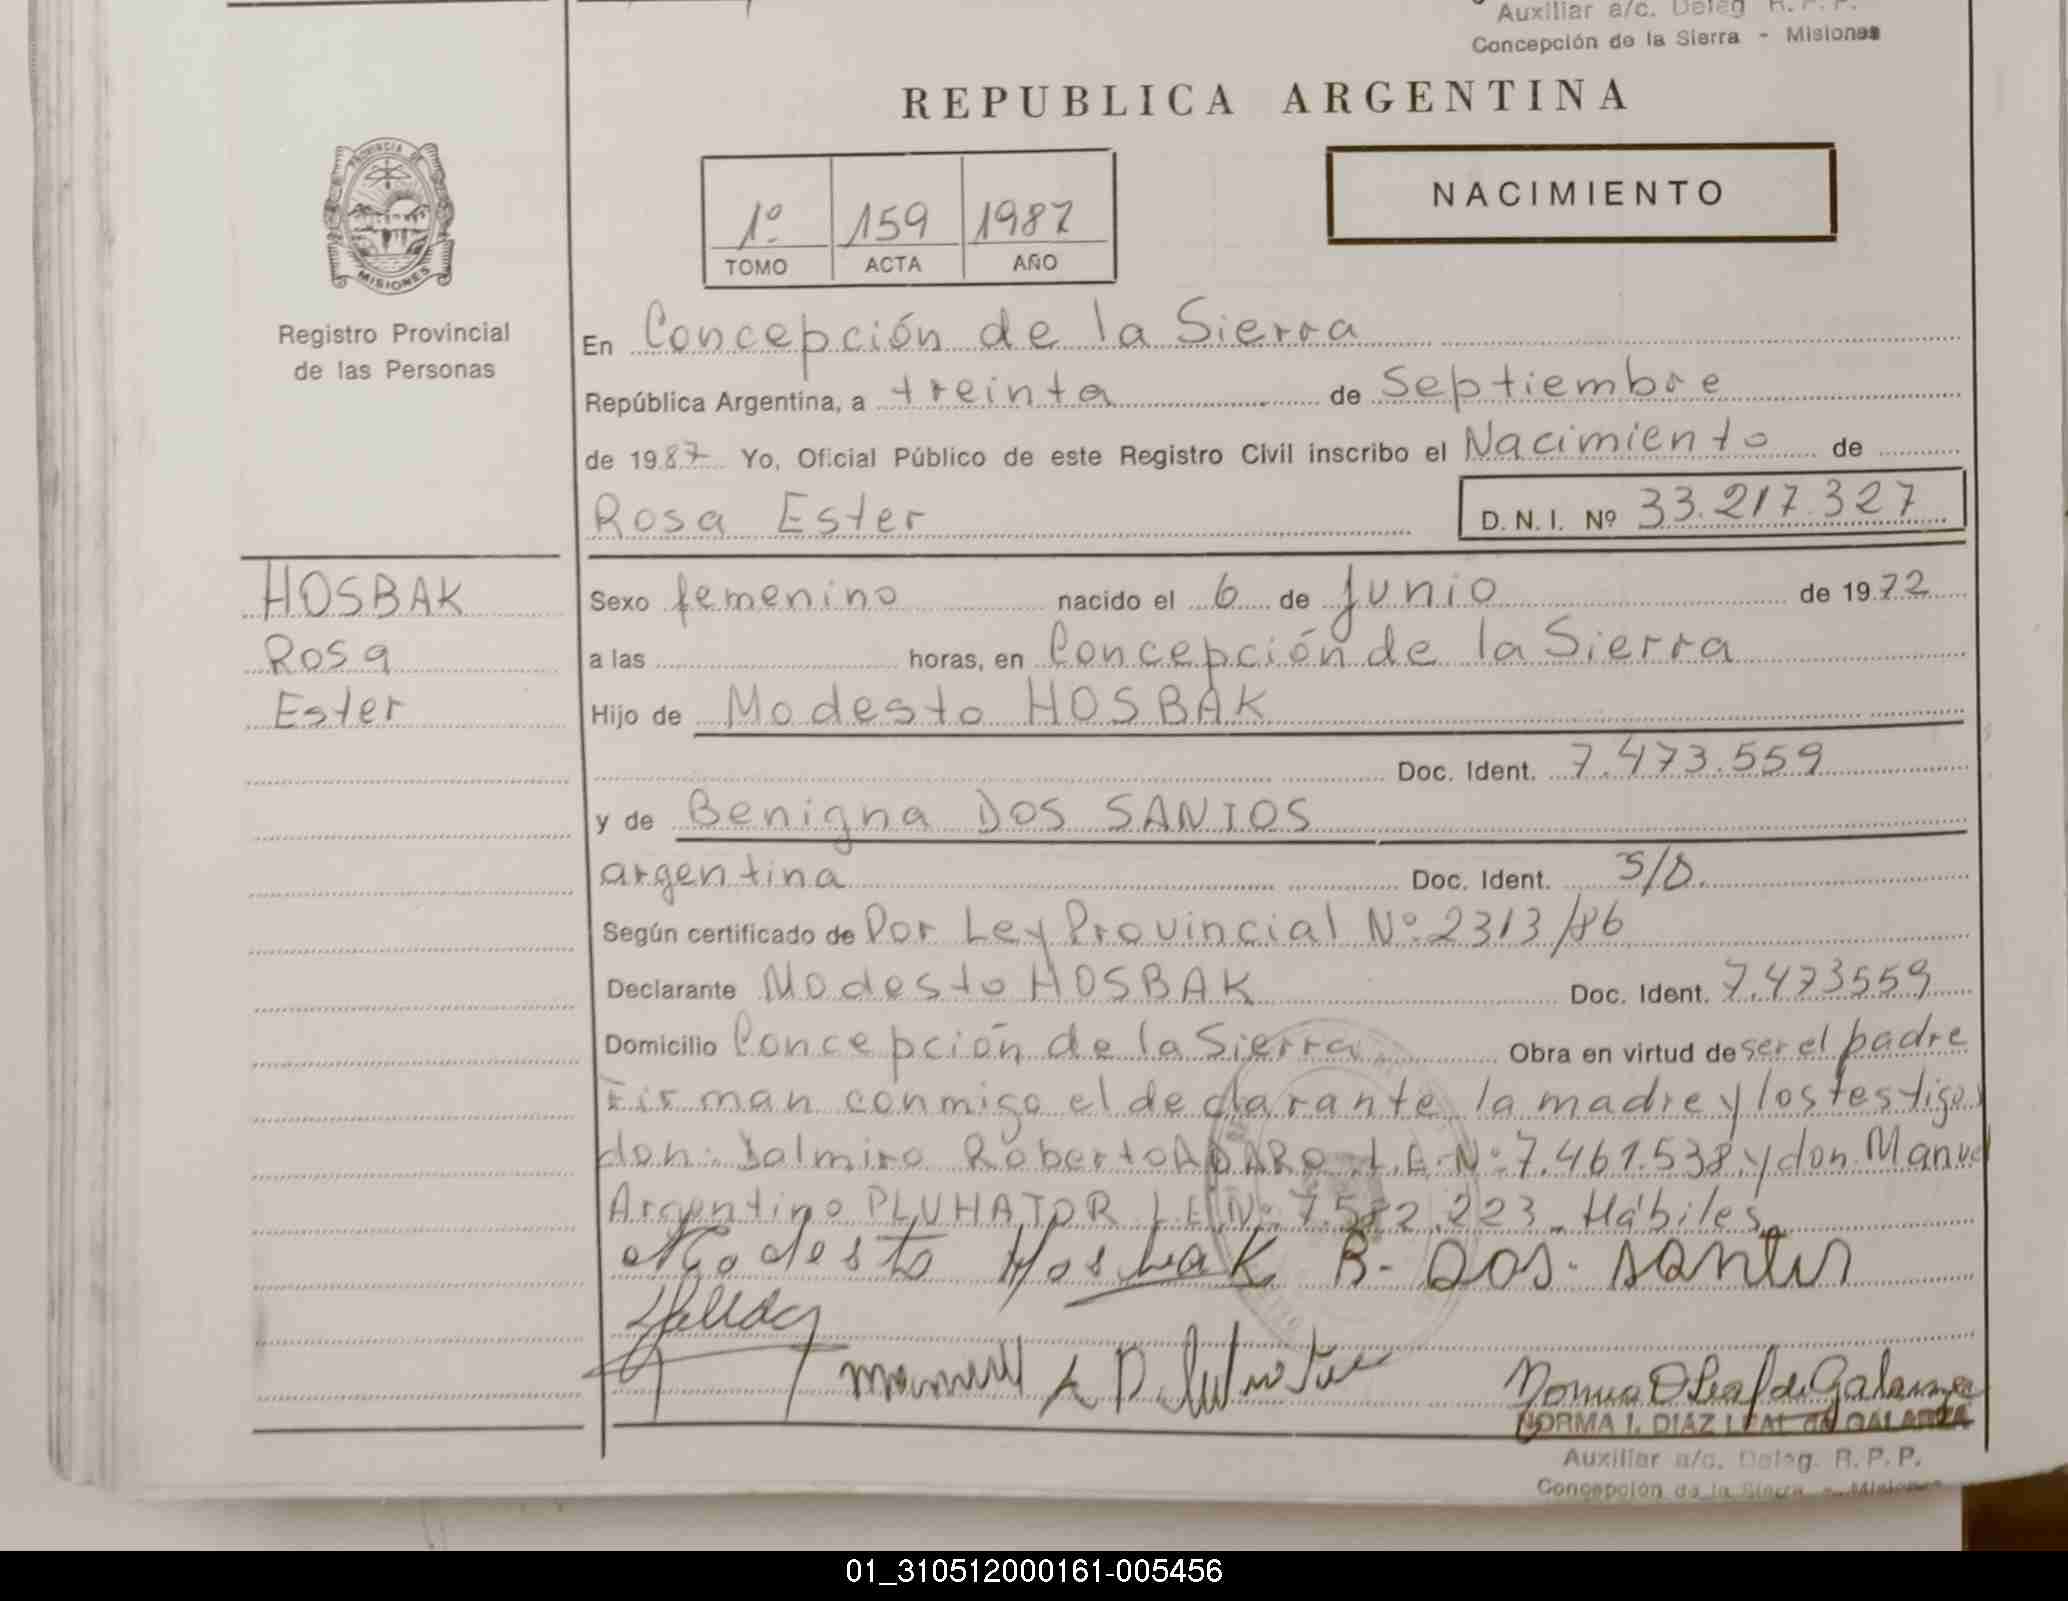 Auxiliar a/c. Deleg R. P. P.
Concepción de la Sierra - Misiones
REPUBLICA ARGENTINA
NACIMIENTO
1º 159 1987
TOMO ACTA AÑO
PROVINCIA DE
MISIONES
Registro Provincial
de las Personas
En Concepción de la Sierra
República Argentina, a treinta de Septiembre
de 1987 Yo, Oficial Público de este Registro Civil inscribo el Nacimiento de
Rosa Ester D. N. I. Nº 33.217.327
HOSBAK
Rosa
Ester
Sexo femenino nacido el 6 de junio de 1972
a las horas, en Concepción de la Sierra
Hijo de Modesto HOSBAK
Doc. Ident. 7.473.559
y de Benigna DOS SANTOS
argentina Doc. Ident. S/D.
Según certificado de Por Ley Provincial Nº 2313/86
Declarante Modesto HOSBAK Doc. Ident. 7.473559
Domicilio Concepción de la Sierra Obra en virtud de ser el padre
Firman conmigo el declarante, la madre y los testigos
don: Dalmiro Roberto ADARO L.E. Nº 7.461.538 y don Manuel
Argentino PLUHATOR L.E. Nº 7.582.223. Hábiles.
Modesto Hosbak B. Dos. Santos
Manuel A P
NORMA I. DIAZ LEAL de GALARZA
Auxiliar a/c. Deleg. R. P. P.
Concepción de la Sierra - Misiones
01_310512000161-005456